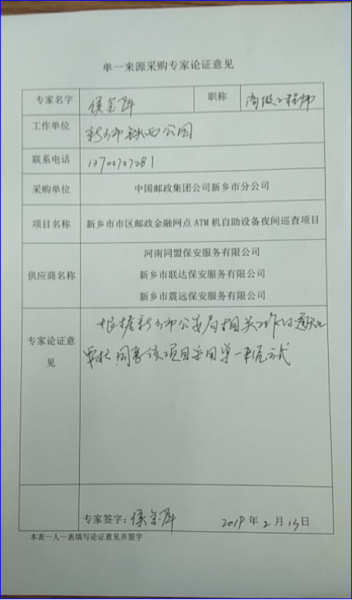 单一来源采购专家论证意见
专家名字 侯 职称 高级工程师
工作单位 新乡市铁西公园
联系电话
采购单位 中国邮政集团公司新乡市分公司
项目名称 新乡市市区邮政金融网点 ATM 机自助设备夜间巡查项目
供应商名称
河南同盟保安服务有限公司
新乡市联达保安服务有限公司
新乡市震远保安服务有限公司
专家论证意见
根据新乡市公安局相关工作的通知
要求 同意该项目采用单一来源方式
专家签字：侯 2019 年 2 月 13 日
本表一人一表填写论证意见并签字